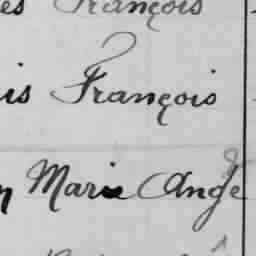 es François
is François
n Marie Ange